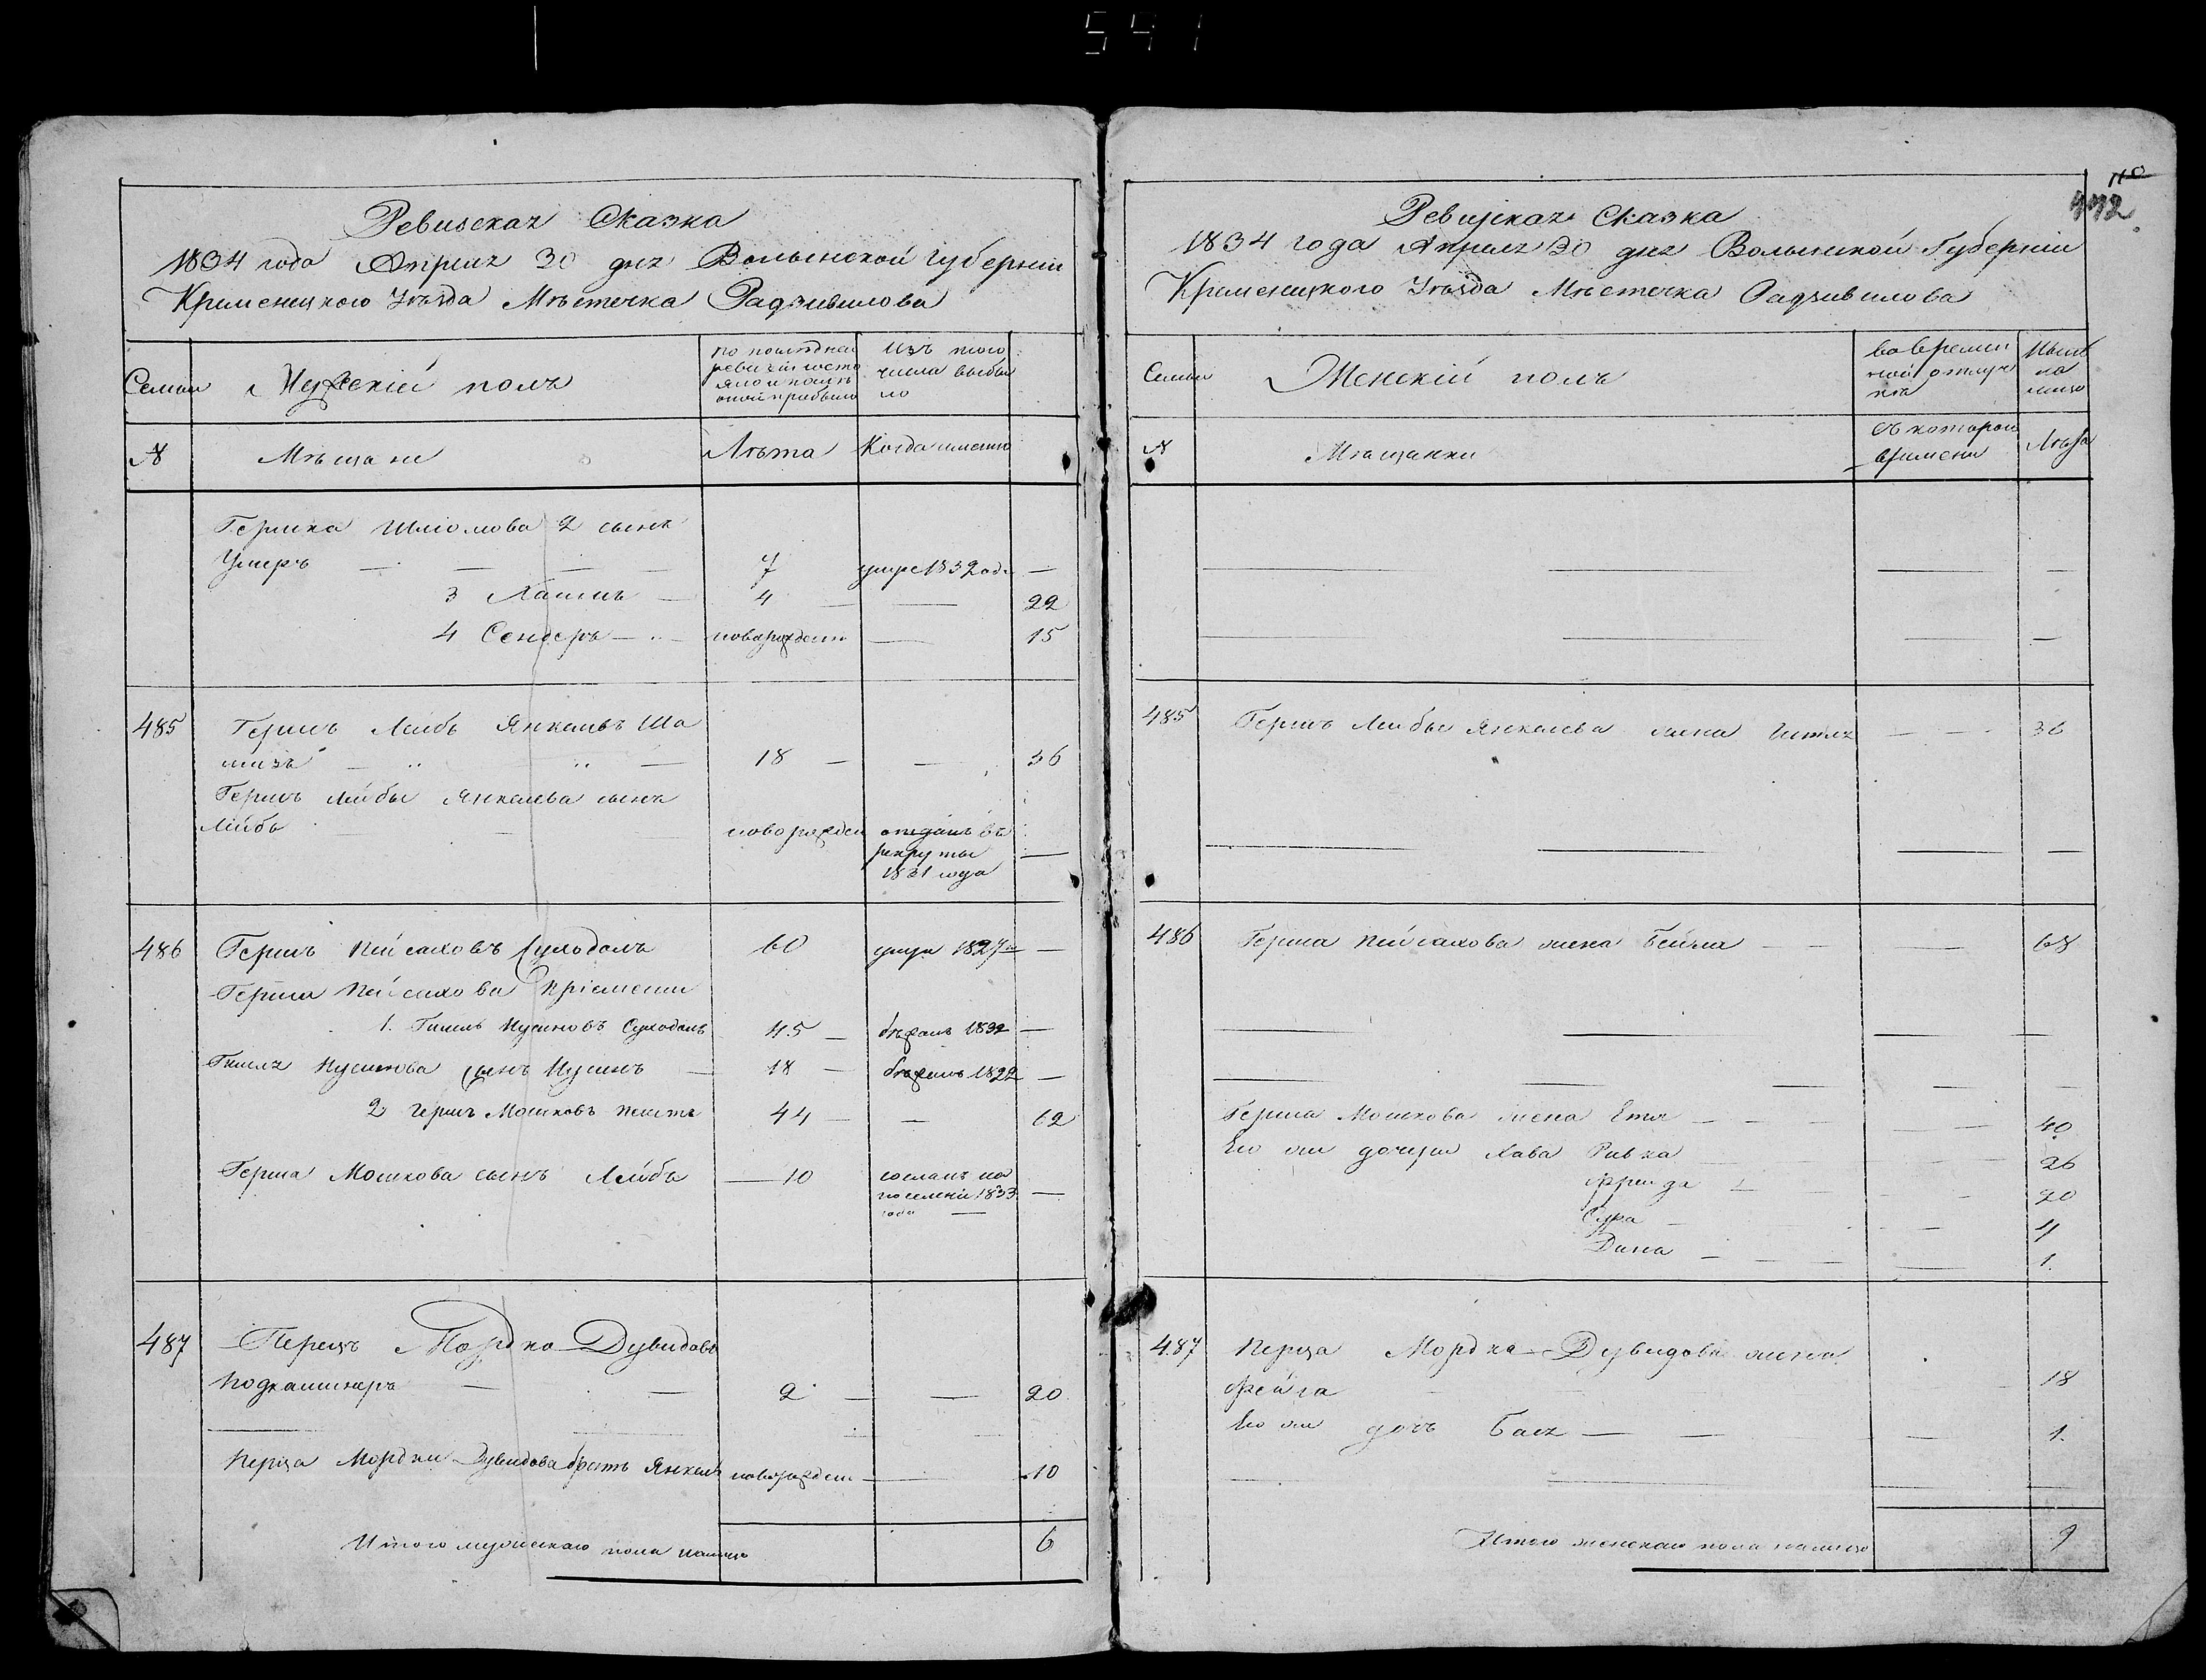 541
Ревизская Сказка
1834 года Апрѣля 30 дня Волынской губерніи
Кременецкого Уѣзда Мѣстечка Радзивилова
Семьи
Мужескій полъ
по послѣдней
ревизіи состо
яло и послѣ
оной прибыло
Изъ того
числа выбы
ло
№
Мѣщане
Лѣта
Когда именно
Гершка Шліомова 2 сынъ
Умеръ
7
умре 1832 года
3 Хаимъ
4
22
4 Сендеръ
новорожден
15
485
Гершъ Лейбъ Янкелевъ
18
36
Гершъ Лейбы Янкелева сынъ
Лейбъ
новорожден
отданъ въ
рекруты
1831 года
486
Гершъ Пейсаховъ Суходолъ
60
умре 1827
Герша Пейсахова Пріемыши
1. Гшиль Нусиновъ Суходолъ
45
бѣжалъ 1832
Гшиля Нусинова сынъ Нусинъ
18
бѣжалъ 1822
2 Гершъ Мошковъ
44
62
Герша Мошкова сынъ Лейбъ
10
сосланъ на
поселеніе 1833
года
487
Перецъ Мордко Дувидовъ
Подкаминеръ
2
20
Перца Мордки Дувидова братъ Янкель
новорожден
10
Итого мужескаго пола налицо
6
Ревизская Сказка
1834 года Апрѣля 30 дня Волынской Губерніи
Кременецкого Уѣзда Мѣстечка Радзивилова
Семьи
Женскій полъ
во времен
ной отлуч
кѣ
Ныне
на
лицо
№
Мѣщанки
съ котораго
времени
Лѣта
485
Гершъ Лейбы Янкелева жена
36
486
Герша Пейсахова жена Бейля
68
Герша Мошкова жена Етя
40
Его же дочери Хава Ривка
26
Фрейда
20
Сура
4
Дина
1.
487
Перца Мордка Дувидова жена
Фейга
18
Его же дочь Бася
1.
Итого женскаго пола налицо
9